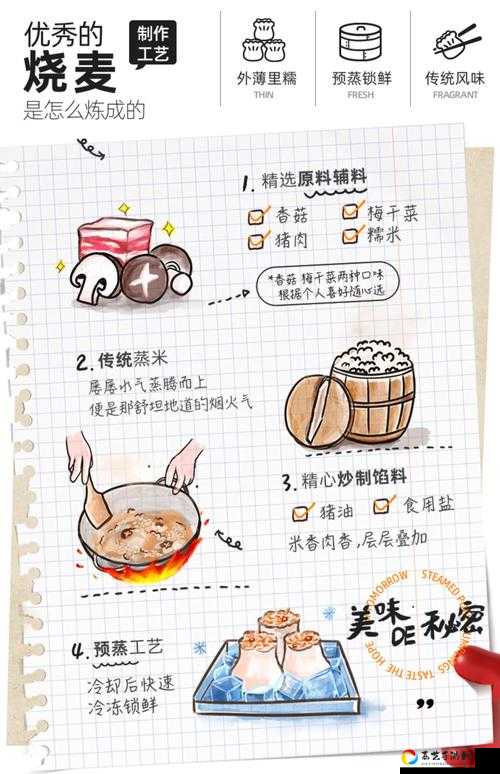 优秀的
烧麦
制作
工艺
是怎么炼成的
外薄里糯
THIN
预蒸锁鲜
FRESH
传统风味
FRAGRANT
1. 精选原料辅料
香菇
梅干菜
猪肉
糯米
*香菇 梅干菜两种口味
根据个人喜好随心选
2. 传统蒸米
屡屡水气蒸腾而上
便是那舒坦地道的烟火气
3. 精心炒制馅料
猪油
食用盐
米香肉香,层层叠加
美味DE秘密
4. 预蒸工艺
冷却后快速
冷冻锁鲜